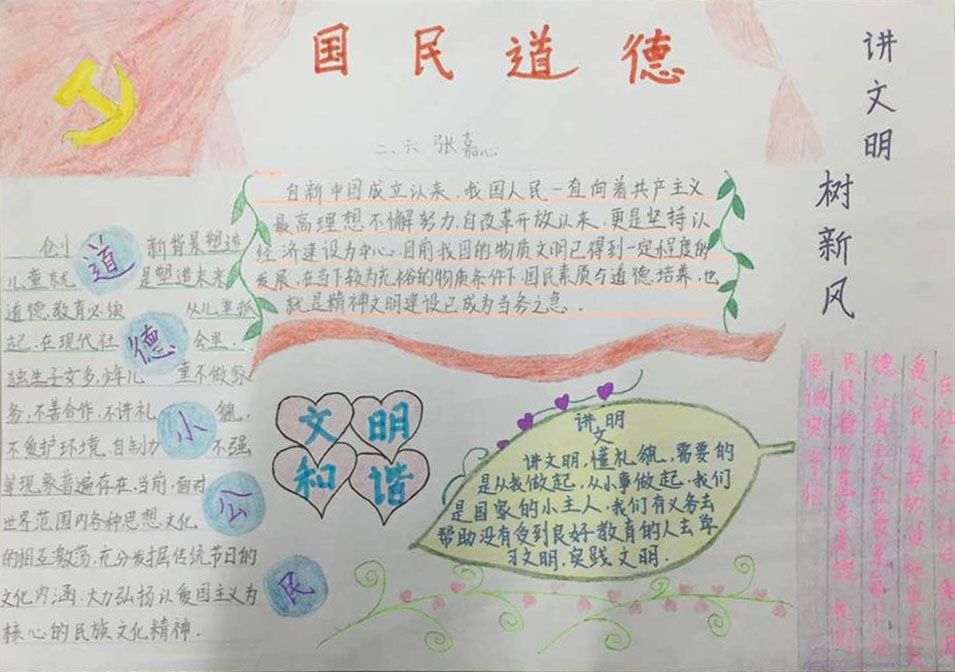 国民道德
讲文明
树新风
二、六 张嘉心
自新中国成立以来,我国人民一直向着共产主义
最高理想不懈努力,自改革开放以来,更是坚持以
经济建设为中心.目前我国的物质文明已得到一定程度的
发展,在当下较为充裕的物质条件下国民素质与道德培养,也
就是精神文明建设已成为当务之急.
道德小公民
新背景塑造
儿童就是塑造未来
道德教育必须 从儿童抓
起.在现代社会里.
独生子女多,少年儿童不做家
务,不善合作,不讲礼貌,
不爱护环境,自制力不强
等现象普遍存在.当前,面对
世界范围内各种思想文化
的相互激荡,充分发掘传统节日的
文化内涵,大力弘扬以爱国主义为
核心的民族文化精神.
文明
和谐
讲文明
讲文明,懂礼貌,需要的
是从我做起,从小事做起.我们
是国家的小主人.我们有义务去
帮助没有受到良好教育的人去学
习文明,实践文明.